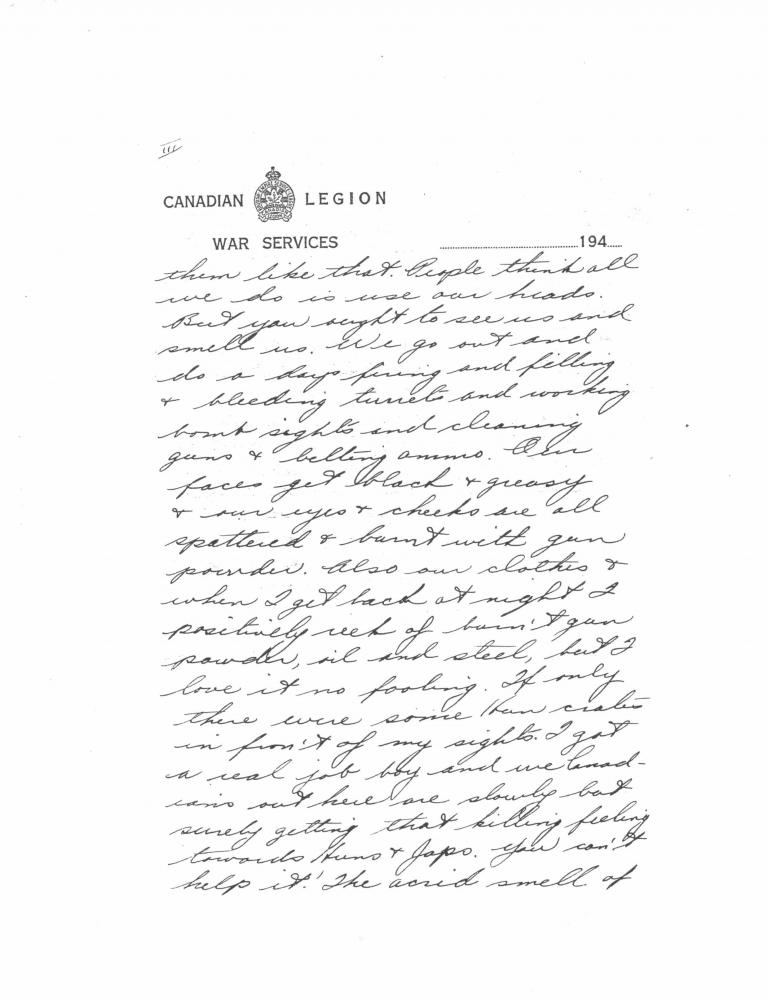 III
CANADIAN LEGION
WAR SERVICES 194
them like that. People think all
we do is use our heads.
But you ought to see us and
smell us. We go out and
do a days firing and filling
& bleeding turrets and working
bomb sights and cleaning
guns & belting ammo. Our
faces get black & greasy
& our eyes & cheeks are all
spattered & burnt with gun
powder. Also our clothes &
when I get back at night I
positively reek of burn't gun
powder, oil and steel, but I
love it no fooling. If only
there were some Hun crates
in fron't of my sights. I got
a real job boy and we Canad-
ians out here are slowly but
surely getting that killing feeling
towards Huns & Japs. You can't
help it! The acrid smell of